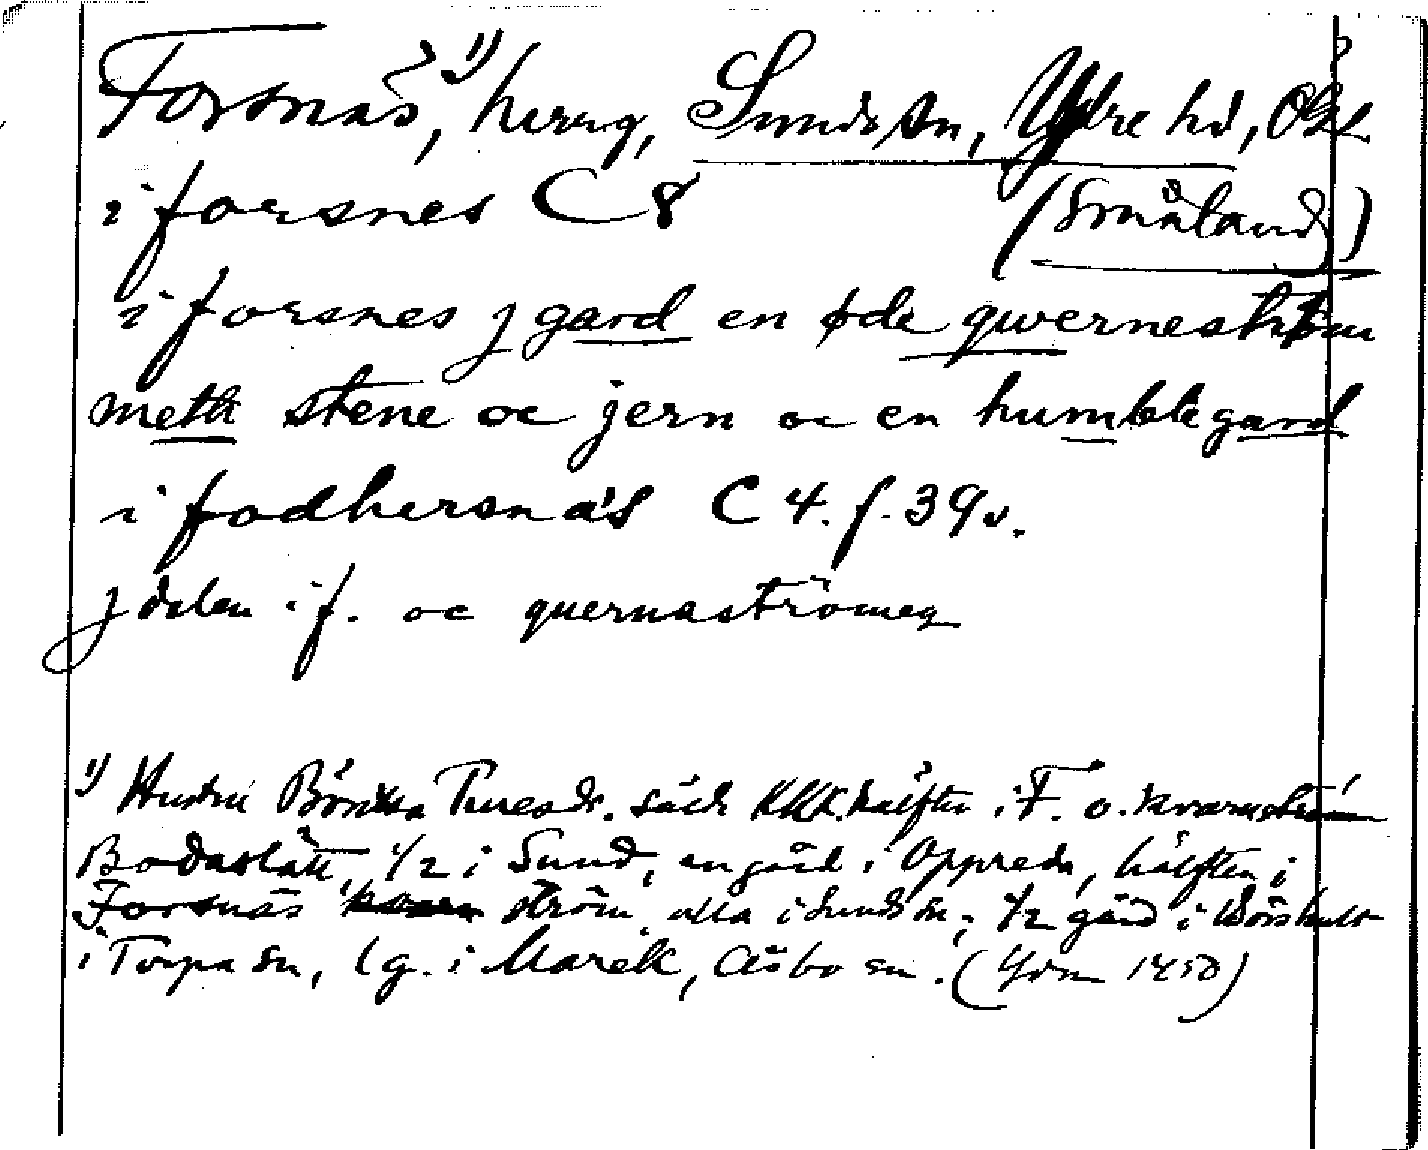 Forsnäs,¹⁾ herrg, Sunds sn, Ydre hd, Ögl.
i forsnes C 8 (Småland)
i forsnes j gard en øde qwernestrøm
meth stene oc jern oc en humblegard
i fodhersnäs C 4. f. 39v.
j delen i f. oc quernaströmen
¹⁾ Hustru Thuresdr. KKK. hälften i F. o. kvarnström
Bodaslätt, 1/2 i Sund, en gård i Oppreda, hälften i
Forsnäs ström alla i Sunds sn; 1/2 gård i
i Torpa sn, 1 g. i Marek, Åsbo sn. (1450)